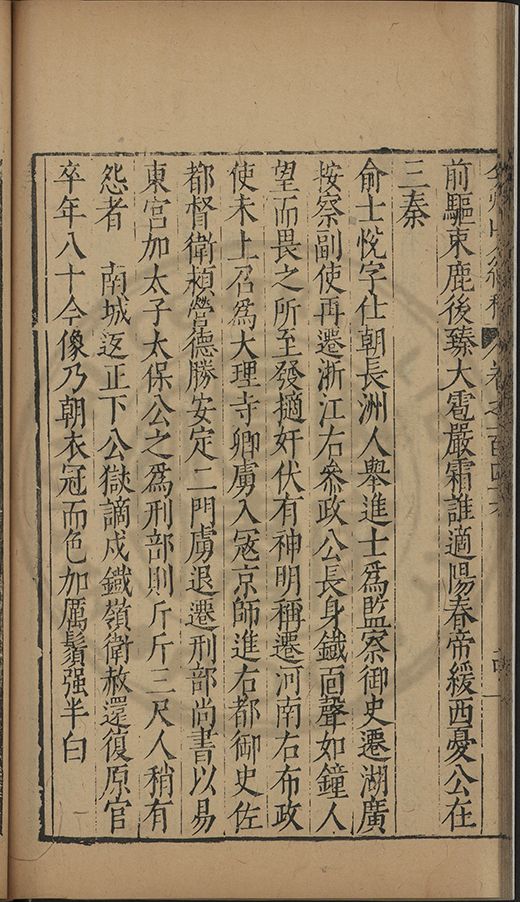 弇州山人續稿 卷之一百四十六
前驅東鹿後臻大雹嚴霜誰適陽春帝緩西憂公在
三秦
俞士悅字仕朝長洲人舉進士爲監察御史遷湖廣
按察副使再遷浙江右參政公長身鐵面聲如鐘人
望而畏之所至發擿奸伏有神明稱遷河南右布政
使未上召爲大理寺卿虜入冦京師進右都御史佐
都督衛熲營德勝安定二門虜退遷刑部尚書以易
東宮加太子太保公之爲刑部則斤斤三尺人稍有
怨者 南城返正下公獄謫戍鐵嶺衛赦還復原官
卒年八十今像乃朝衣冠而色加厲鬚强半白